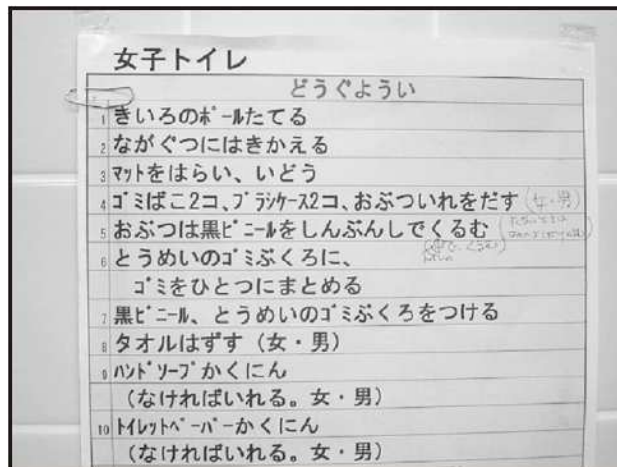 女子トイレ
どうぐようい
1 きいろのポールたてる
2 ながぐつにはきかえる
3 マットをはらい、いどう
4 ゴミばこ2コ、ブラシケース2コ、おぶついれをだす (女・男)
5 おぶつは黒ビニールをしんぶんしでくるむ
6 とうめいのゴミぶくろに、
ゴミをひとつにまとめる
7 黒ビニール、とうめいのゴミぶくろをつける
8 タオルはずす (女・男)
9 ハンドソープかくにん
(なければいれる。女・男)
10 トイレットペーパーかくにん
(なければいれる。女・男)